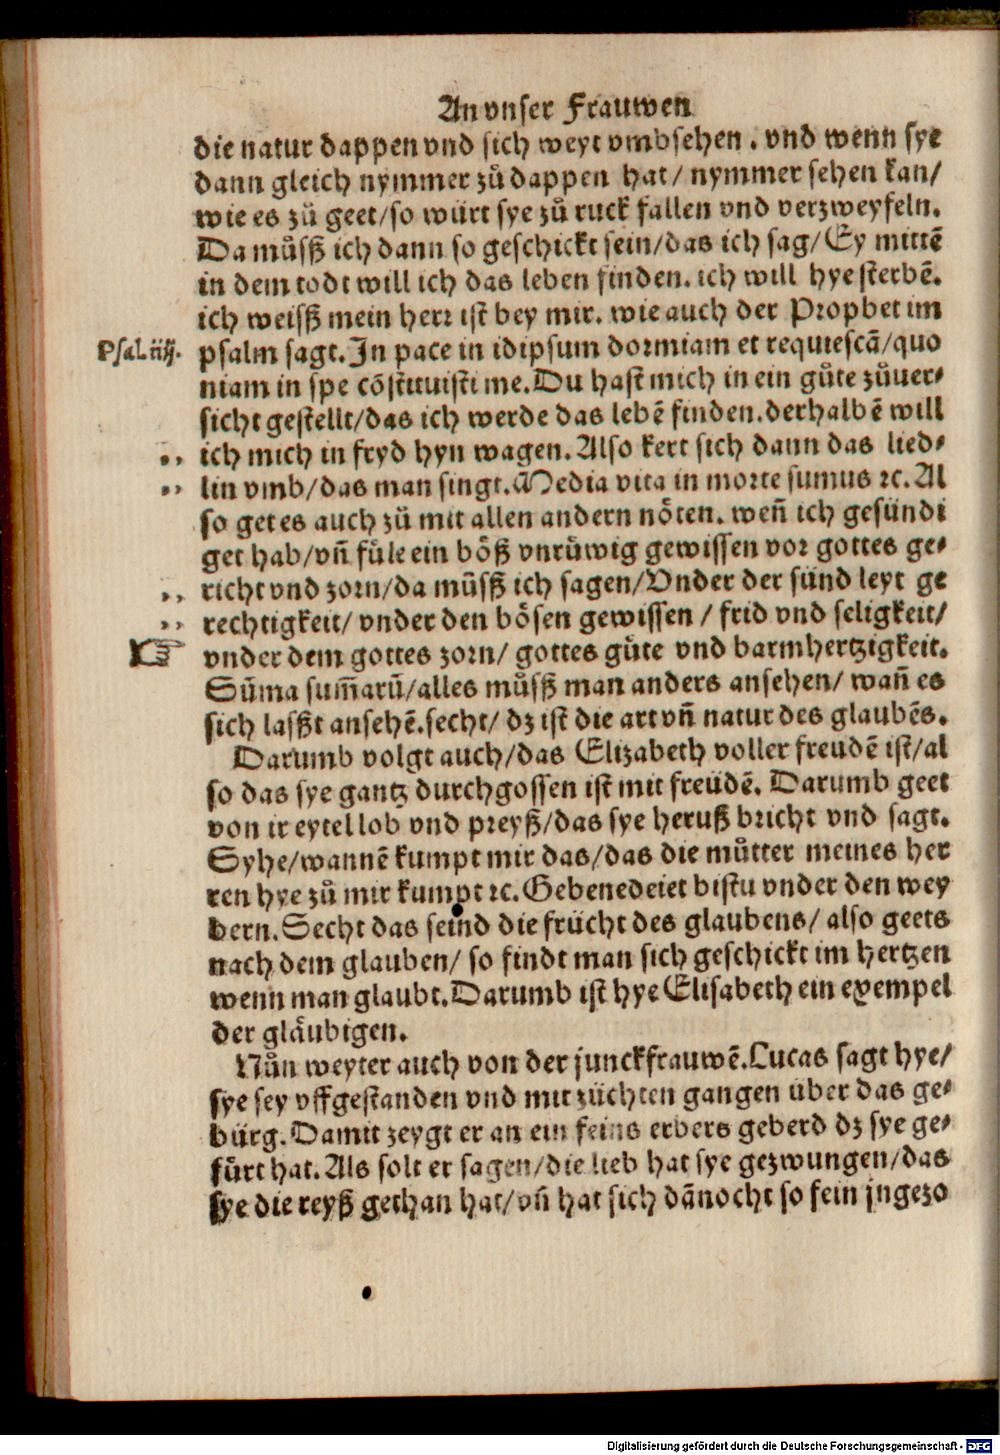 An vnser Frauwen
die natur dappen vnd sich weyt vmbsehen . vnd wenn sye
dann gleich nymmer zů dappen hat / nymmer sehen kan/
wie es zů geet/so würt sye zů ruck fallen vnd verzweyfeln.
Da můsß ich dann so geschickt sein/das ich sag/ Ey mittē
in dem todt will ich das leben finden. ich will hye sterbē.
ich weisß mein herr ist bey mir. wie auch der Prophet im
Psal. iiij.
psalm sagt. In pace in idipsum dormiam et requiescā/quo
niam in spe cōstituisti me. Du hast mich in ein gůte zůuer⸗
sicht gestellt/das ich werde das lebē finden. derhalbē will
,, ich mich in fryd hyn wagen. Also kert sich dann das lied⸗
,, lin vmb/das man singt. Media vita in morte sumus ꝛc. Al
so get es auch zů mit allen andern nöten. weñ ich gesündi
get hab/vñ fůle ein bößs vnrůwig gewissen vor gottes ge⸗
,, richt vnd zorn/da můsß ich sagen/Vnder der sünd leyt ge
,, rechtigkeit/ vnder den bösen gewissen / frid vnd seligkeit/
☞ vnder dem gottes zorn/ gottes gůte vnd barmhertzigkeit.
Sūma sum̄arū/alles můsß man anders ansehen/ wañ es
sich lasßt ansehē. secht/ dz ist die art vñ natur des glaubēs.
Darumb volgt auch/das Elizabeth voller freudē ist/al
so das sye gantz durchgossen ist mit freüdē. Darumb geet
von ir eytel lob vnd preyß/das sye heruß bricht vnd sagt.
Syhe/wannē kumpt mir das/das die můtter meines her
ren hye zů mir kumpt ꝛc. Gebenedeiet bistu vnder den wey
bern. Secht das seind die frücht des glaubens/ also geets
nach dem glauben/ so findt man sich geschickt im hertzen
wenn man glaubt. Darumb ist hye Elisabeth ein exempel
der gläubigen.
Nůn weyter auch von der junckfrauwē. Lucas sagt hye/
sye sey vffgestanden vnd mit züchten gangen über das ge⸗
bürg. Damit zeygt er an ein feins erbers geberd dz sye ge⸗
fürt hat. Als solt er sagen/die lieb hat sye gezwungen/das
sye die reyß gethan hat/vñ hat sich dānocht so fein jngezo
Digitalisierung gefördert durch die Deutsche Forschungsgemeinschaft - DFG